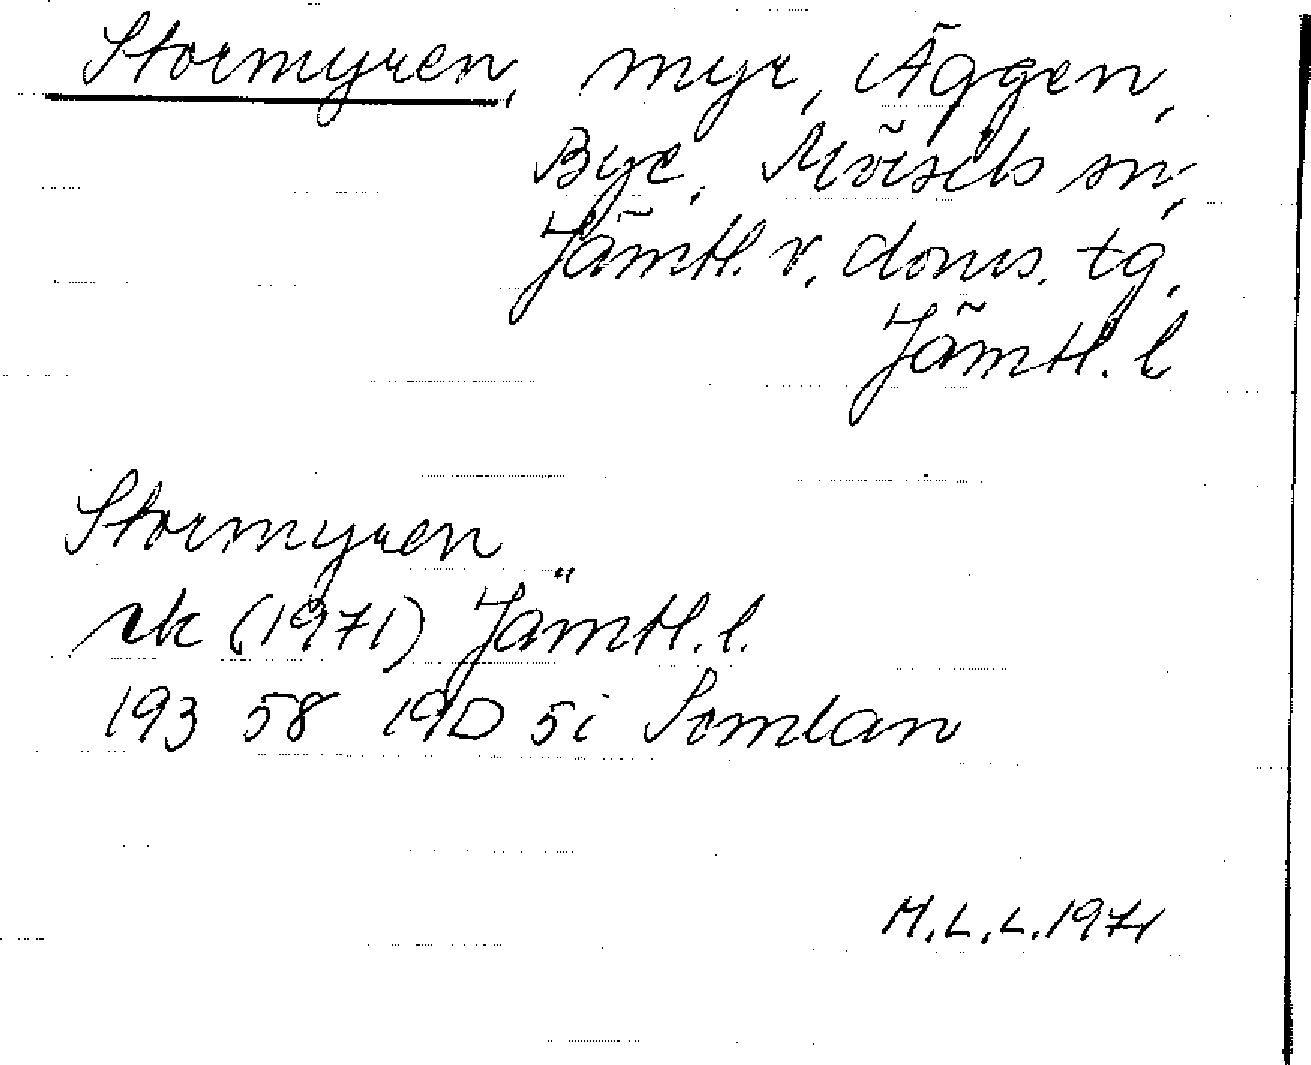 Stormyren, myr, Äggen,
Bye, Mörsils sn,
Jämtl. v. doms. tg,
Jämtl. l
Stormyren
rk (1971) Jämtl. l.
193 58 19D 5i Somlan
M.L.L. 1971